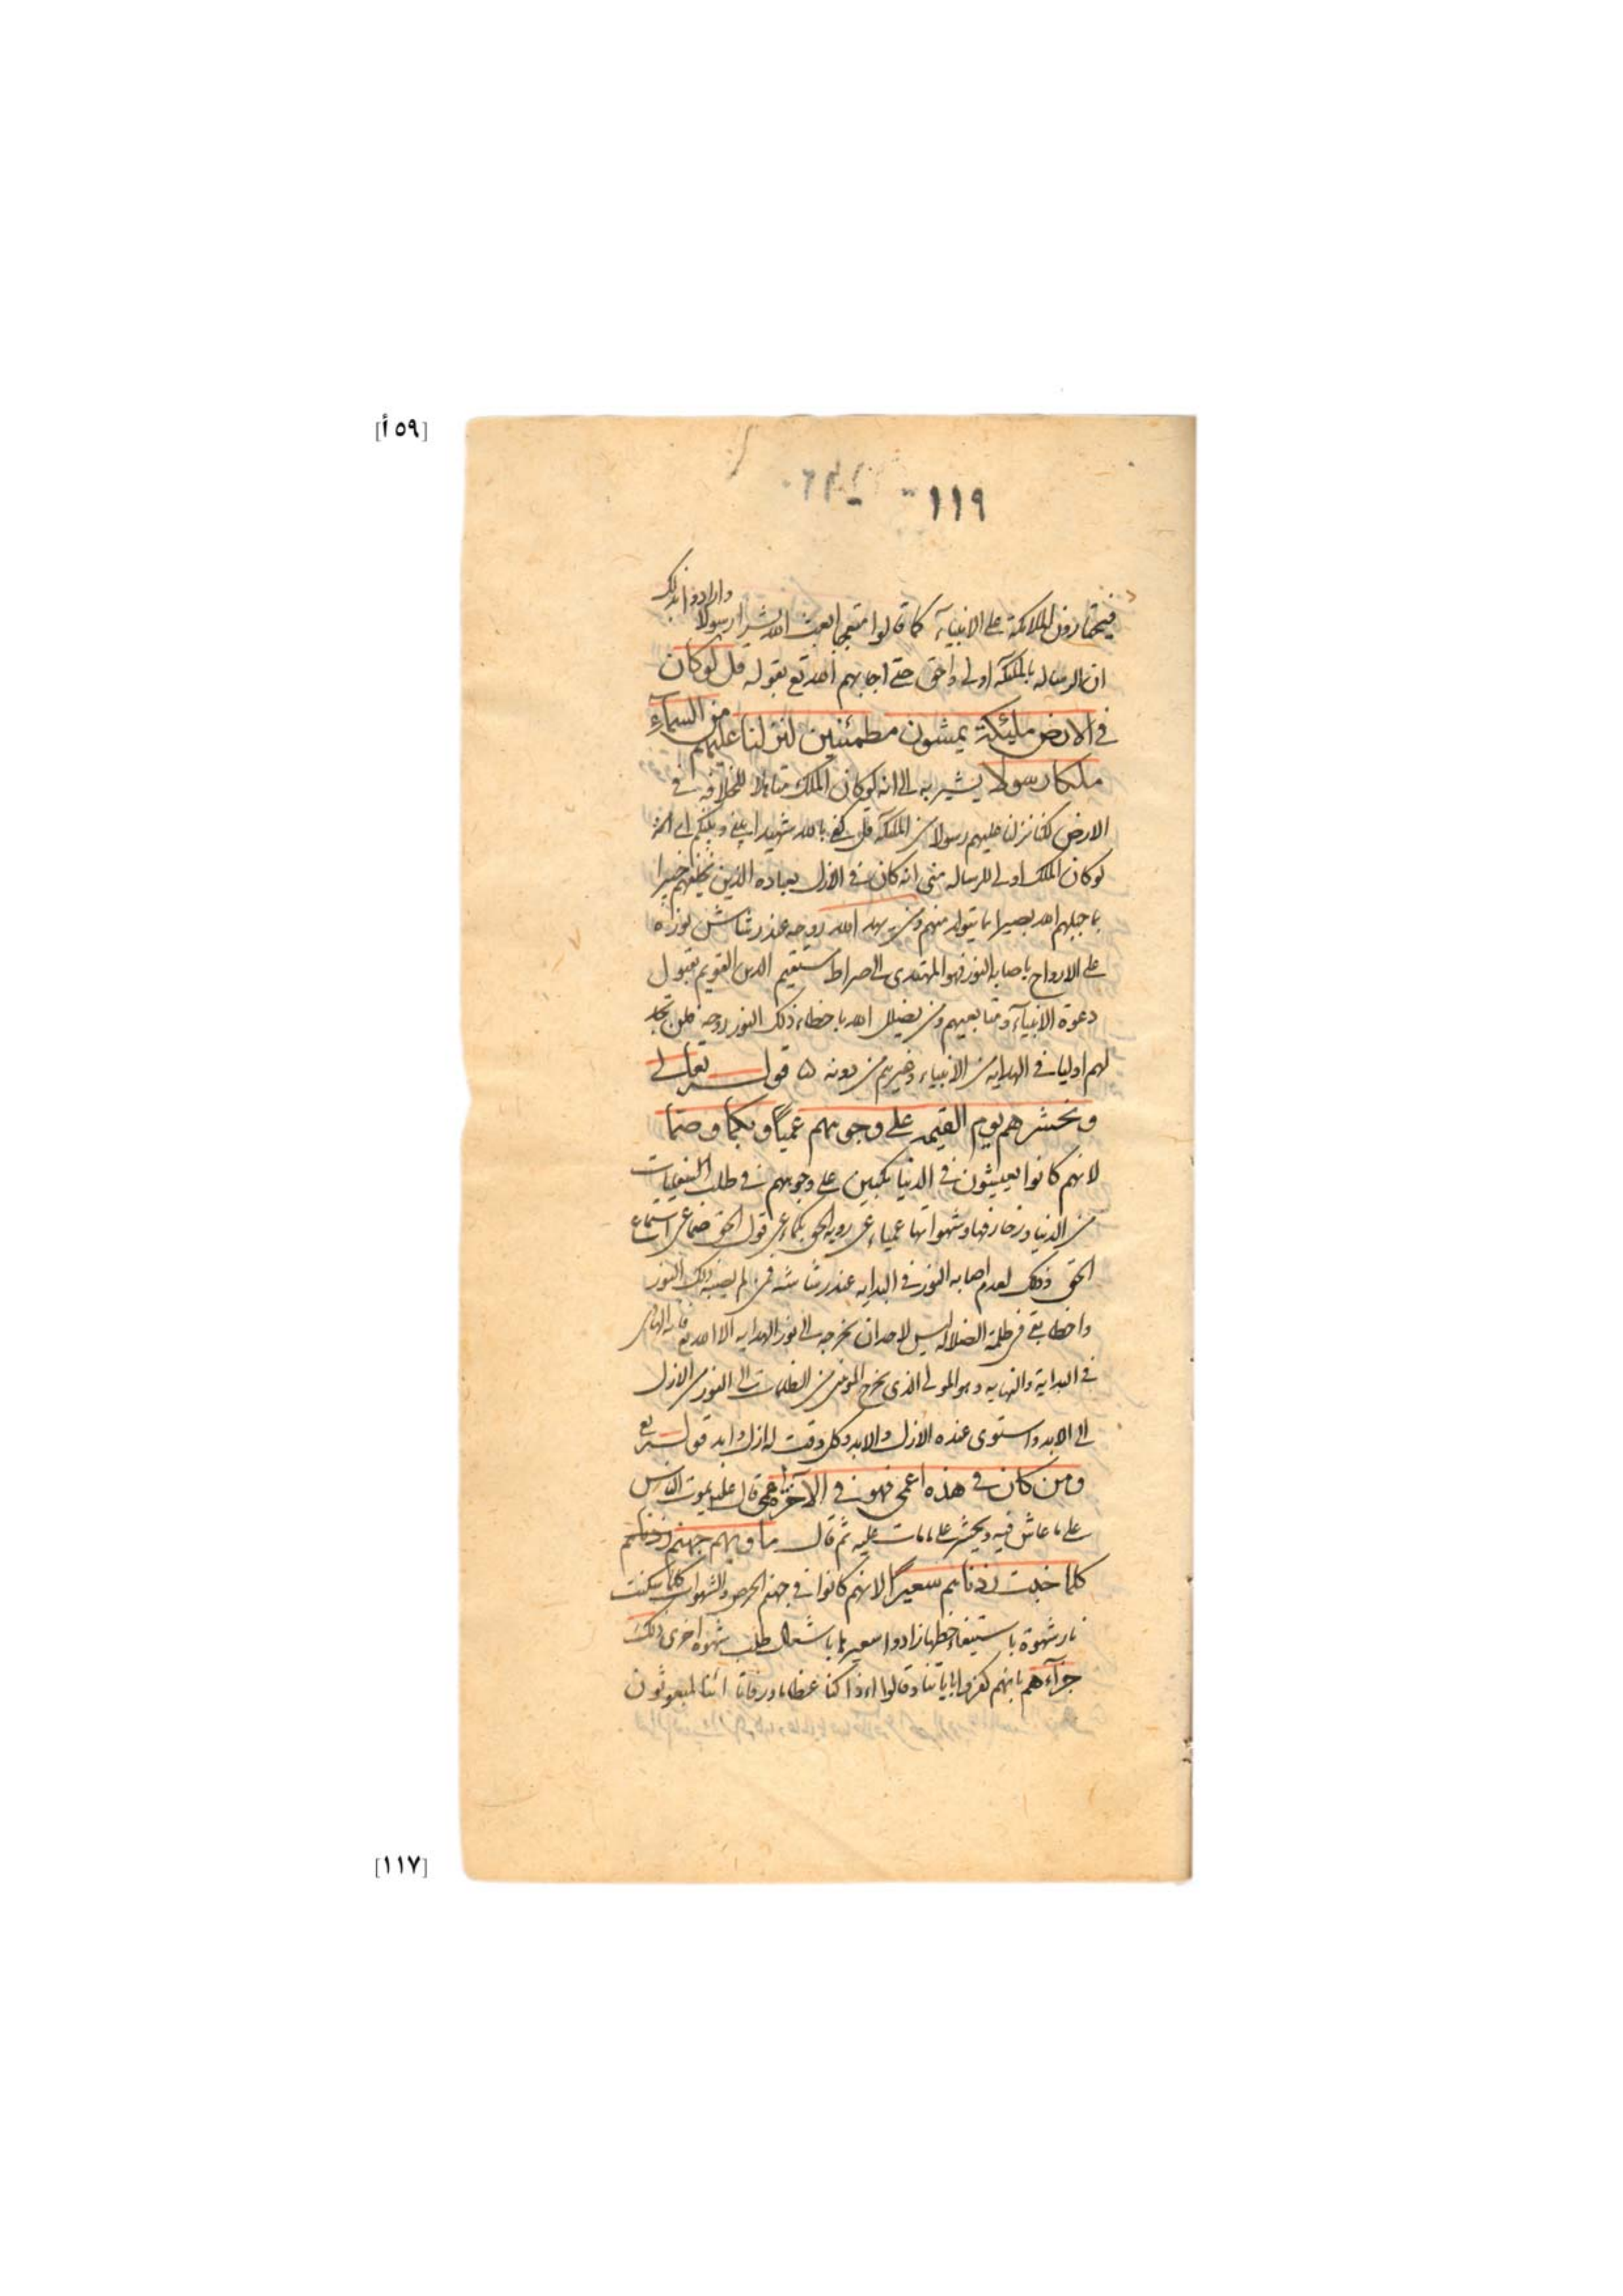 [٥٩ أ]
١١٩
فيختارون الملائكة على الانبيآء كما قالوا متعجبا ابعث الله بشرا رسولا وارادوا بذلك
ان الرساله بالملئكه اولى واحق حتى اجابهم الله تع بقوله قل لوكان
في الارض ملئكة يمشون مطمئنين لنزلنا عليهم من السماء
ملكا رسولا يشير به الى انه لوكان الملك متاهلا للخلافه في
الارض لكنا نزلنا عليهم رسولا من الملئكه قل كفى بالله شهيدا بينى وبينكم اى انه
لوكان الملك اولى للرساله منى انه كان في الازل بعباده الذين يخلقهم خبيرا
بما جبلهم الله بصيرا بما يتولد منهم ومن يهد الله روحه عند رشاش نوره
على الارواح باصابه النور فهو المهتدى الى صراط مستقيم الدين القويم بقبول
دعوة الانبيآء ومتابعيهم ومن يضلل الله باخطاء ذلك النور روحه فلن تجد
لهم اوليا في الهدايه من الانبياء وغيرهم من دونه ۵ قوله تعالى
ونحشرهم يوم القيمه على وجوههم عمياً وبكما وصما
لانهم كانوا يعيشون في الدنيا مكبين على وجوههم في طلب
من الدنيا وزخارفها وشهواتها عمياء عن رويه الحق بكماء عن قول الحق صما عن استماع
الحق وذلك لعدم اصابه النور في البدايه عند رشاشه فمن لم يصبه ذلك النور
واخطا بقى في ظلمة الضلاله ليس لاحد ان يخرجه الى نور الهدايه الا الله تع فانه الهادى
في البداية والنهايه وهو المولى الذى يخرج المومنين من الظلمات الى النور من الازل
الى الابد واستوى عنده الازل والابد وكل وقت له ازل وابد قوله تع
ومن كان في هذه اعمى فهو في الآخرة اعمى قال عليه يموت الناس
على ما عاش فيه ويحشر على ما مات عليه ثم قال ماويهم جهنم زدناهم
كلما خبت زدناهم سعيرًا لانهم كانوا في جهنم الحرص والشهوات كلما سكنت
نار شهوة باستيفاء حظها زادوا سعيرها باشتغال طلب شهوة اخرى ذلك
جزآءهم بانهم كفروا باياتنا وقالوا ءاذا كنا عظاما ورفاتا ائنا لمبعوثون
[١١٧]